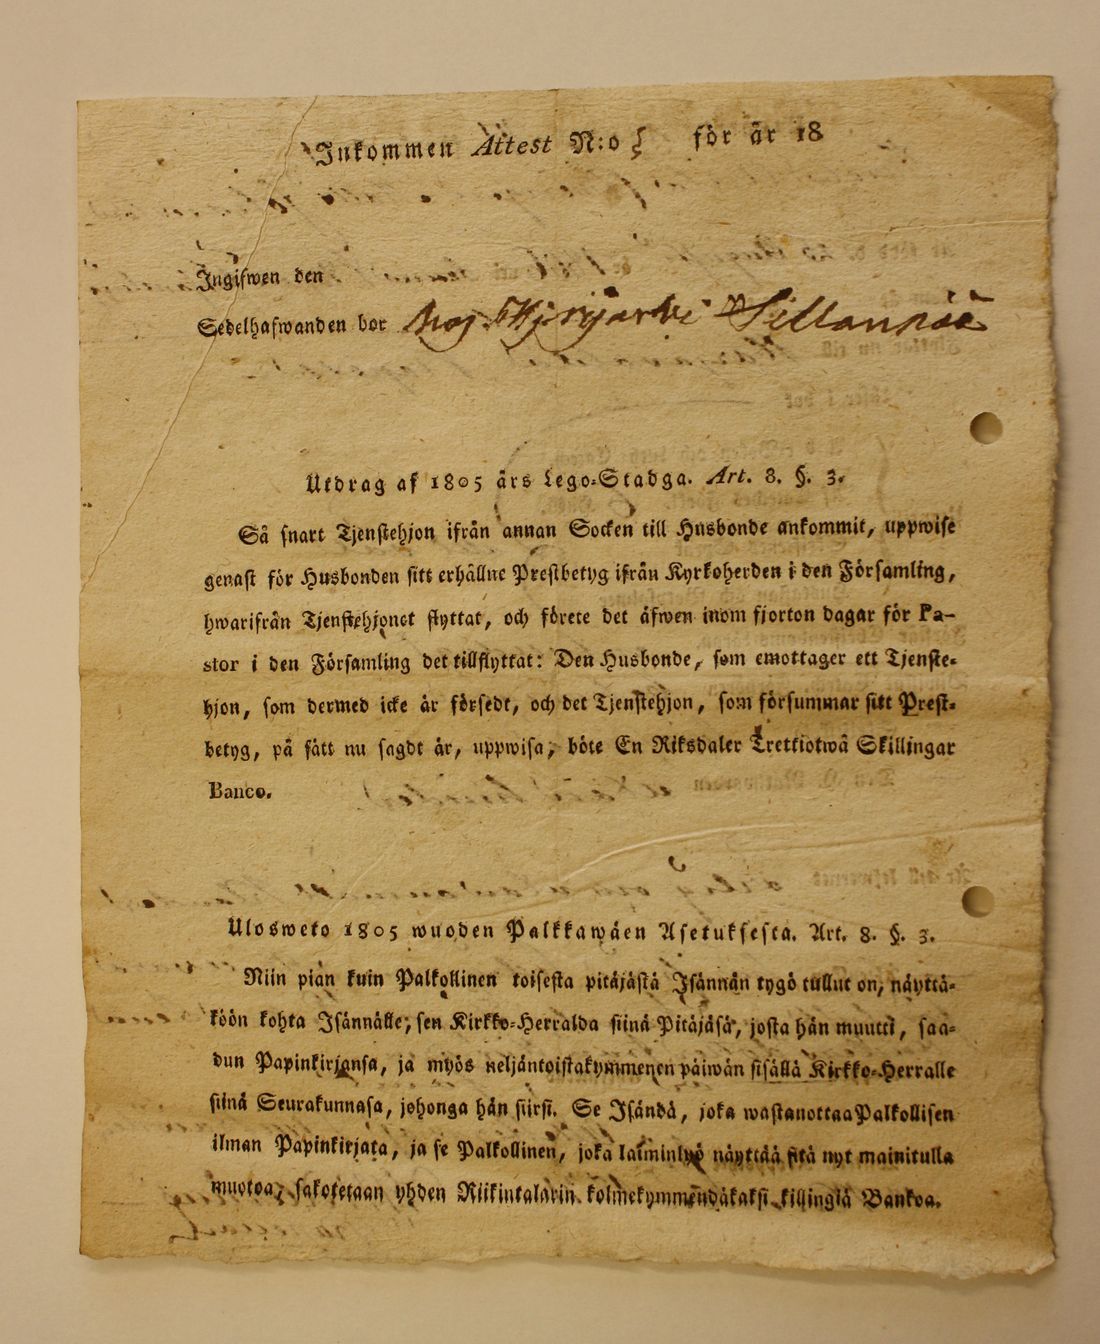 Inkommen Attest N:o för år 18
Ingifwen den
Sedelhafwanden bor
Utdrag af 1805 års Lego-Stadga. Art. 8. §. 3.
Så snart Tjenstehjon ifrån annan Socken till Husbonde ankommit, uppwise
genast för Husbonden sitt erhållne Prestbetyg ifrån Kyrkoherden i den Församling,
hwarifrån Tjenstehjonet flyttat, och förete det äfwen inom fjorton dagar för Pa-
stor i den Församling det tillflyttat: Den Husbonde, som emottager ett Tjenste-
hjon, som dermed icke är försedt, och det Tjenstehjon, som försummar sitt Prest-
betyg, på sätt nu sagdt är, uppwisa, böte En Riksdaler Trettiotwå Skillingar
Banco.
Ulosweto 1805 wuoden Palkkawäen Asetuksesta. Art. 8. §. 3.
Niin pian kuin Palkollinen toisesta pitäjästä Isännän tygö tullut on, näyttä-
köön kohta Isännälle, sen Kirkko-Herralda siinä Pitäjäsä, josta hän muutti, saa-
dun Papinkirjansa, ja myös neljäntoistakymmenen päiwän sisällä Kirkko-Herralle
siinä Seurakunnasa, johonga hän siirsi. Se Isändä, joka wastanottaa Palkollisen
ilman Papinkirjata, ja se Palkollinen, joka laiminlyö näyttää sitä nyt mainitulla
muotoa, sakotetaan yhden Riikintalarin kolmekymmendäkaksi killingiä Bankoa.